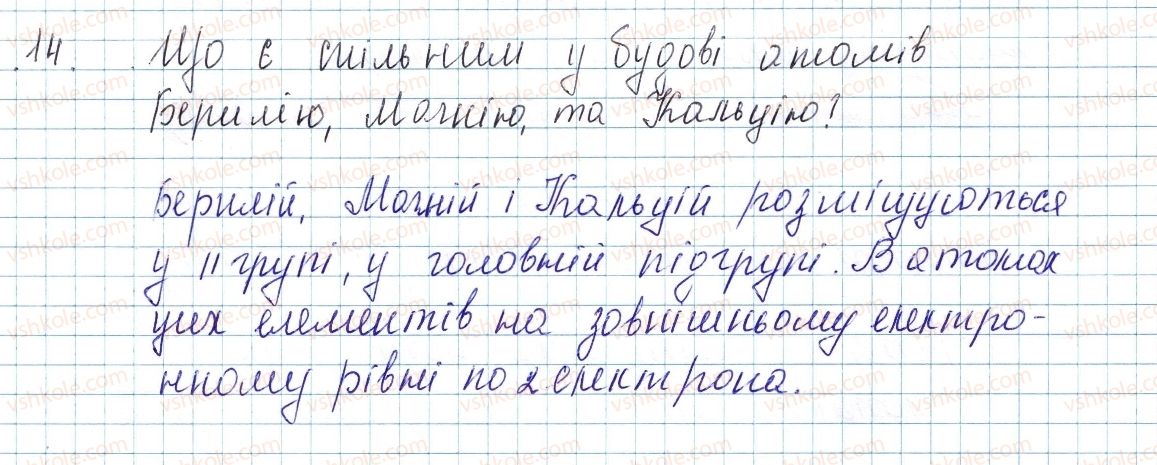 14. Що є спільним у будові атомів
Берилію, Магнію, та Кальцію?
Берилій, Магній і Кальцій розміщуються
у II групі, у головній підгрупі. В атомах
цих елементів на зовнішньому електро-
нному рівні по 2 електрона.